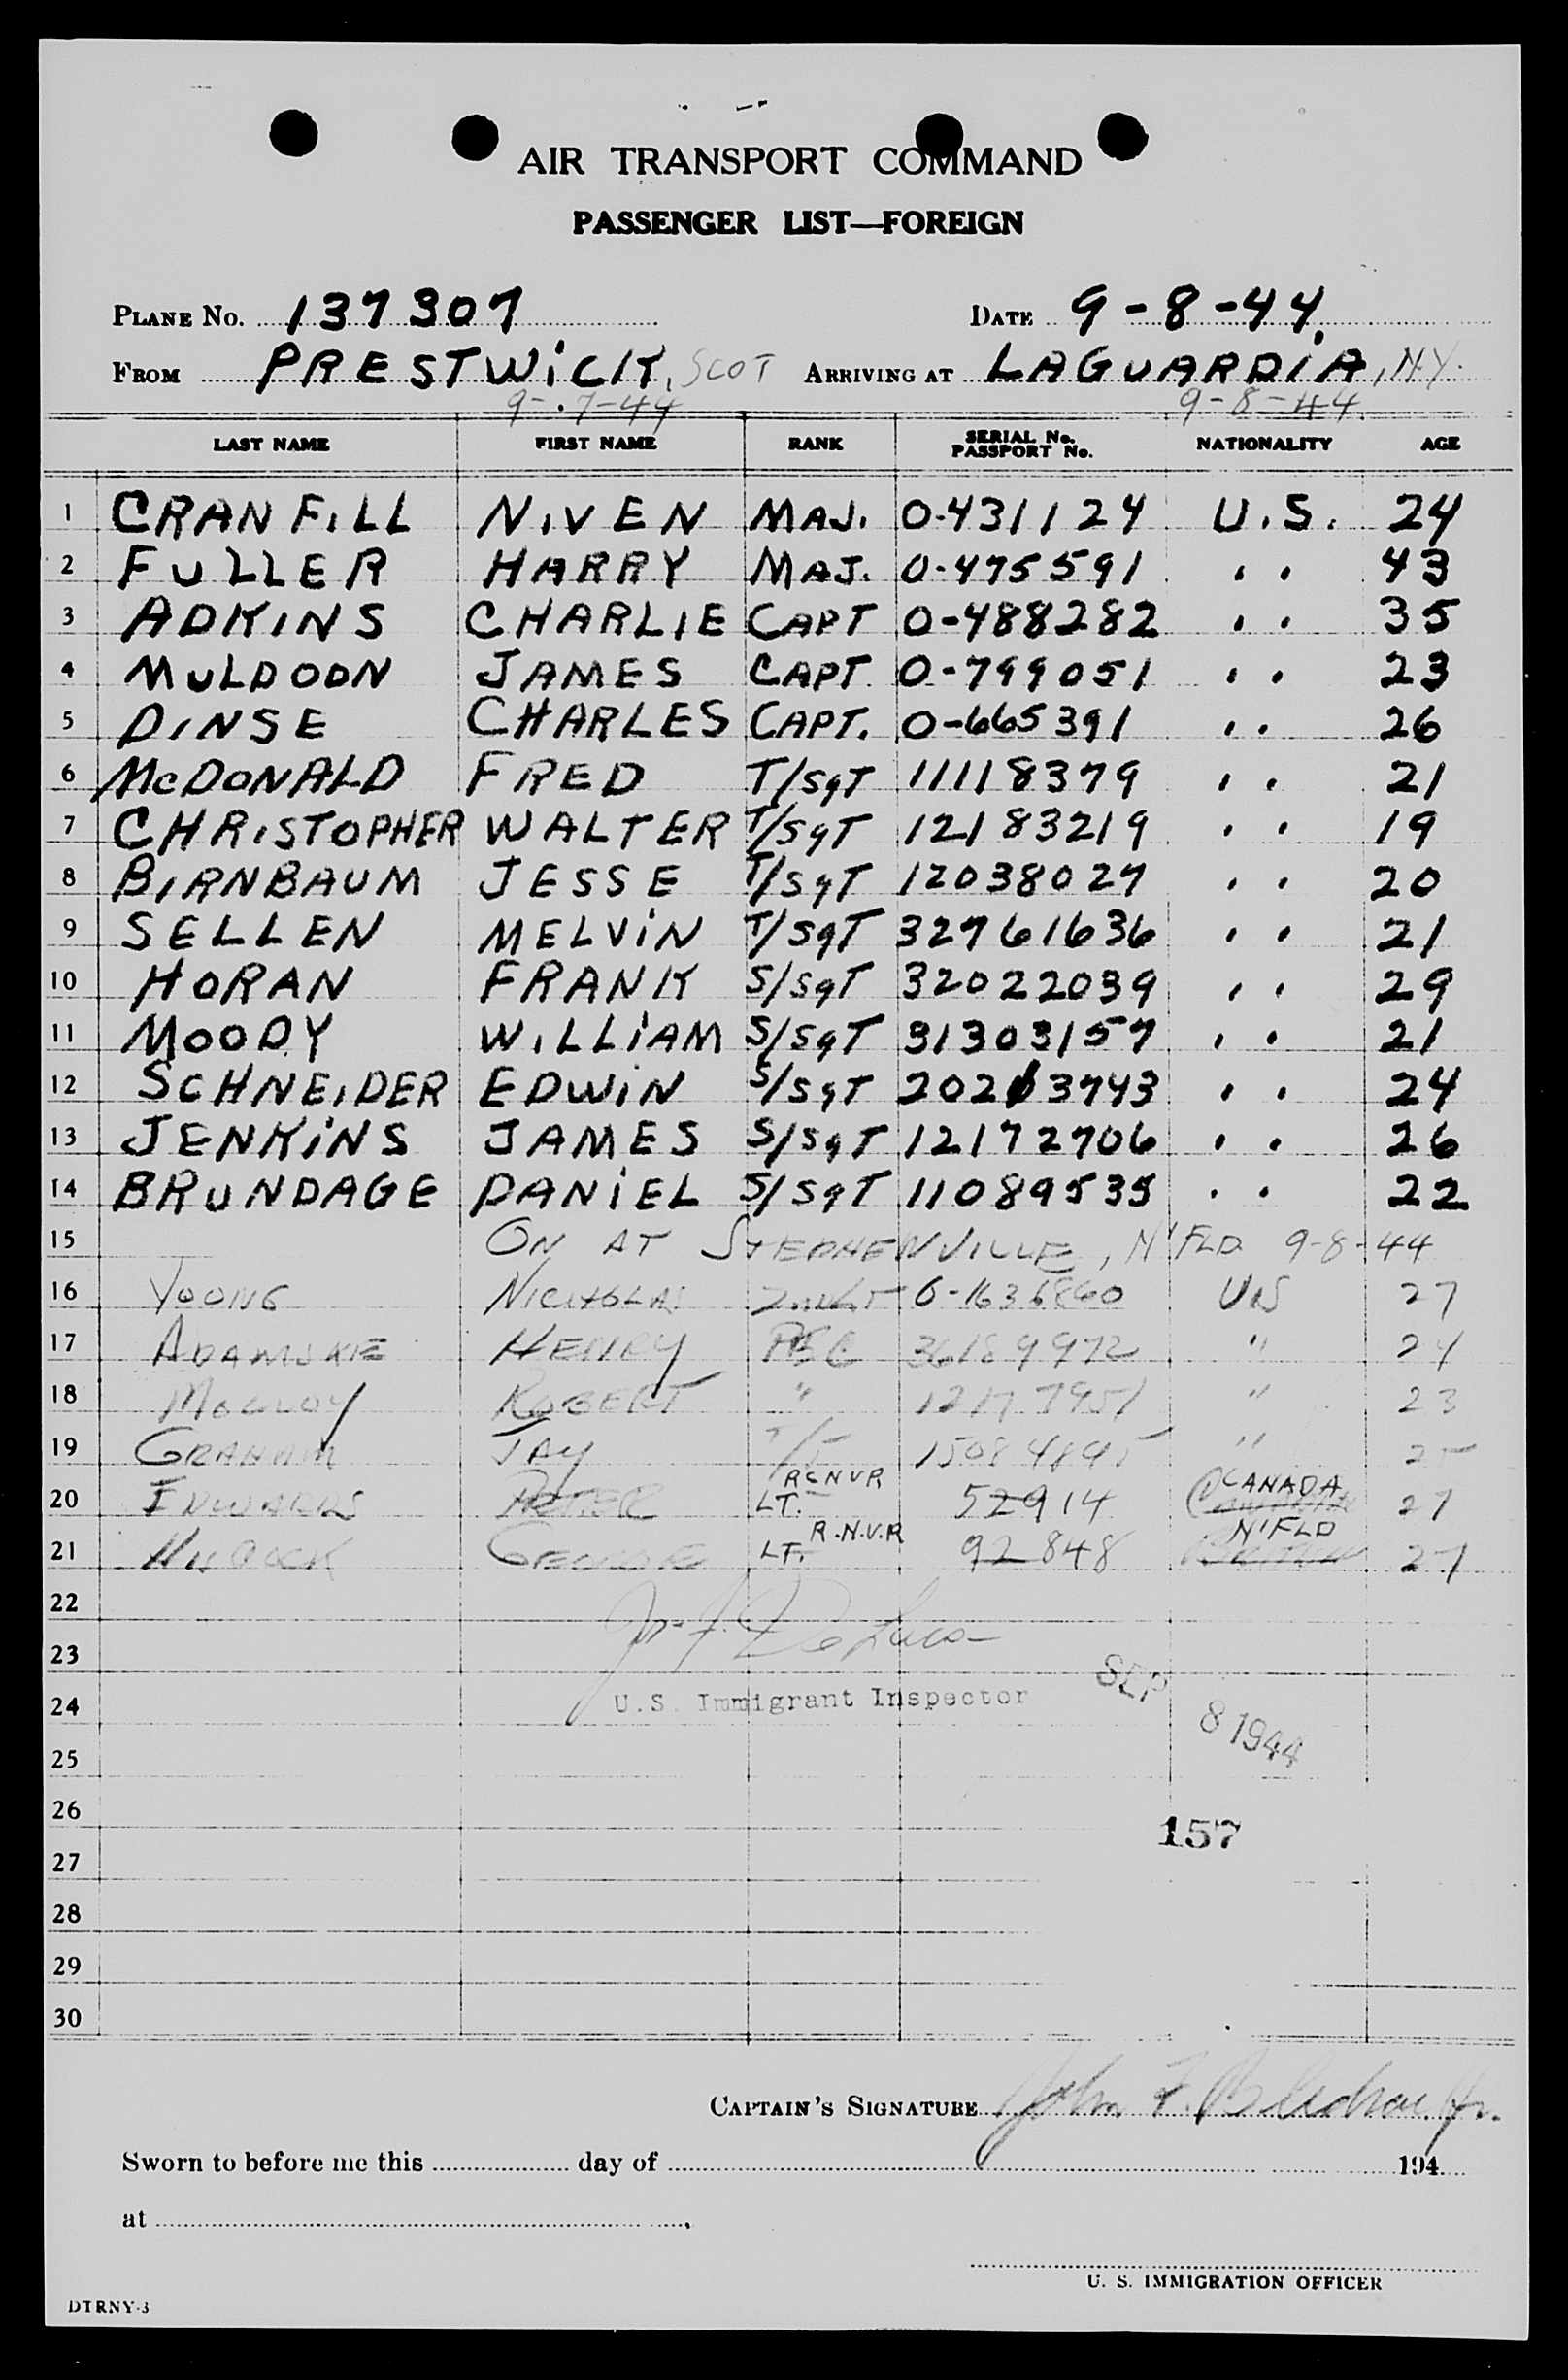 AIR TRANSPORT COMMAND
PASSENGER LIST—FOREIGN
PLANE No. 137307 DATE 9-8-44.
FROM PRESTWICK, SCOT ARRIVING AT LAGUARDIA, N.Y.
9-7-44 9-8-44
LAST NAME FIRST NAME RANK SERIAL No. PASSPORT No. NATIONALITY AGE
1 CRANFILL NIVEN MAJ. 0-431124 U.S. 24
2 FULLER HARRY MAJ. 0-475591 " 43
3 ADKINS CHARLIE CAPT 0-488282 " 35
4 MULDOON JAMES CAPT. 0-799051 " 23
5 DINSE CHARLES CAPT. 0-665391 " 26
6 McDONALD FRED T/SGT 11118379 " 21
7 CHRISTOPHER WALTER T/SGT 12183219 " 19
8 BIRNBAUM JESSE T/SGT 12038027 " 20
9 SELLEN MELVIN T/SGT 32761636 " 21
10 HORAN FRANK S/SGT 32022039 " 29
11 MOODY WILLIAM S/SGT 31303157 " 21
12 SCHNEIDER EDWIN S/SGT 20203743 " 24
13 JENKINS JAMES S/SGT 12172706 " 26
14 BRUNDAGE DANIEL S/SGT 11089535 " 22
15 ON AT STEPHENVILLE, N'FLD 9-8-44
16 YOUNG NICHOLAS US 27
17 ADAMSKIE HENRY 36189972 " 24
18 ROBERT " 12177951 " 23
19 GRAHAM JAY T/5 15084895 " 25
20 EDWARDS PETER LT. RCNVR 52914 CANADA 27
21 GEORGE LT. R.N.V.R 92848 N'FLD 27
22
23
U.S. Immigrant Inspector SEP 8 1944
24
25
26
157
27
28
29
30
CAPTAIN'S SIGNATURE John F. Jr.
Sworn to before me this day of 194
at ,
U. S. IMMIGRATION OFFICER
DTRNY-3